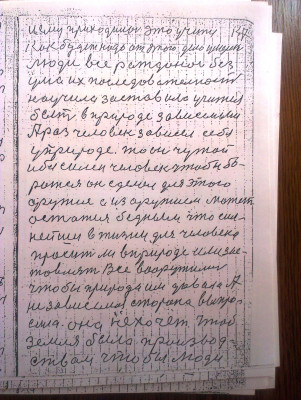 и ему приходилось это учить 147
как будто надо от этого
люди все рождаются без
ума их последовательность
научила заставило учится
быть в природе зависимым
А раз человек зависел себя
у природе то он чужой
и был сам человек чтобы бо-
ротся он сделал для этого
оружие а из оружием может
остатся бедным что силь-
нейшим в жизни для человека
просит ли в природе или
Все вооружили
чтобы природа им давала А
независимая сторона выпро-
сила она не хочет чтоб
земля была производ-
ством чтобы люди